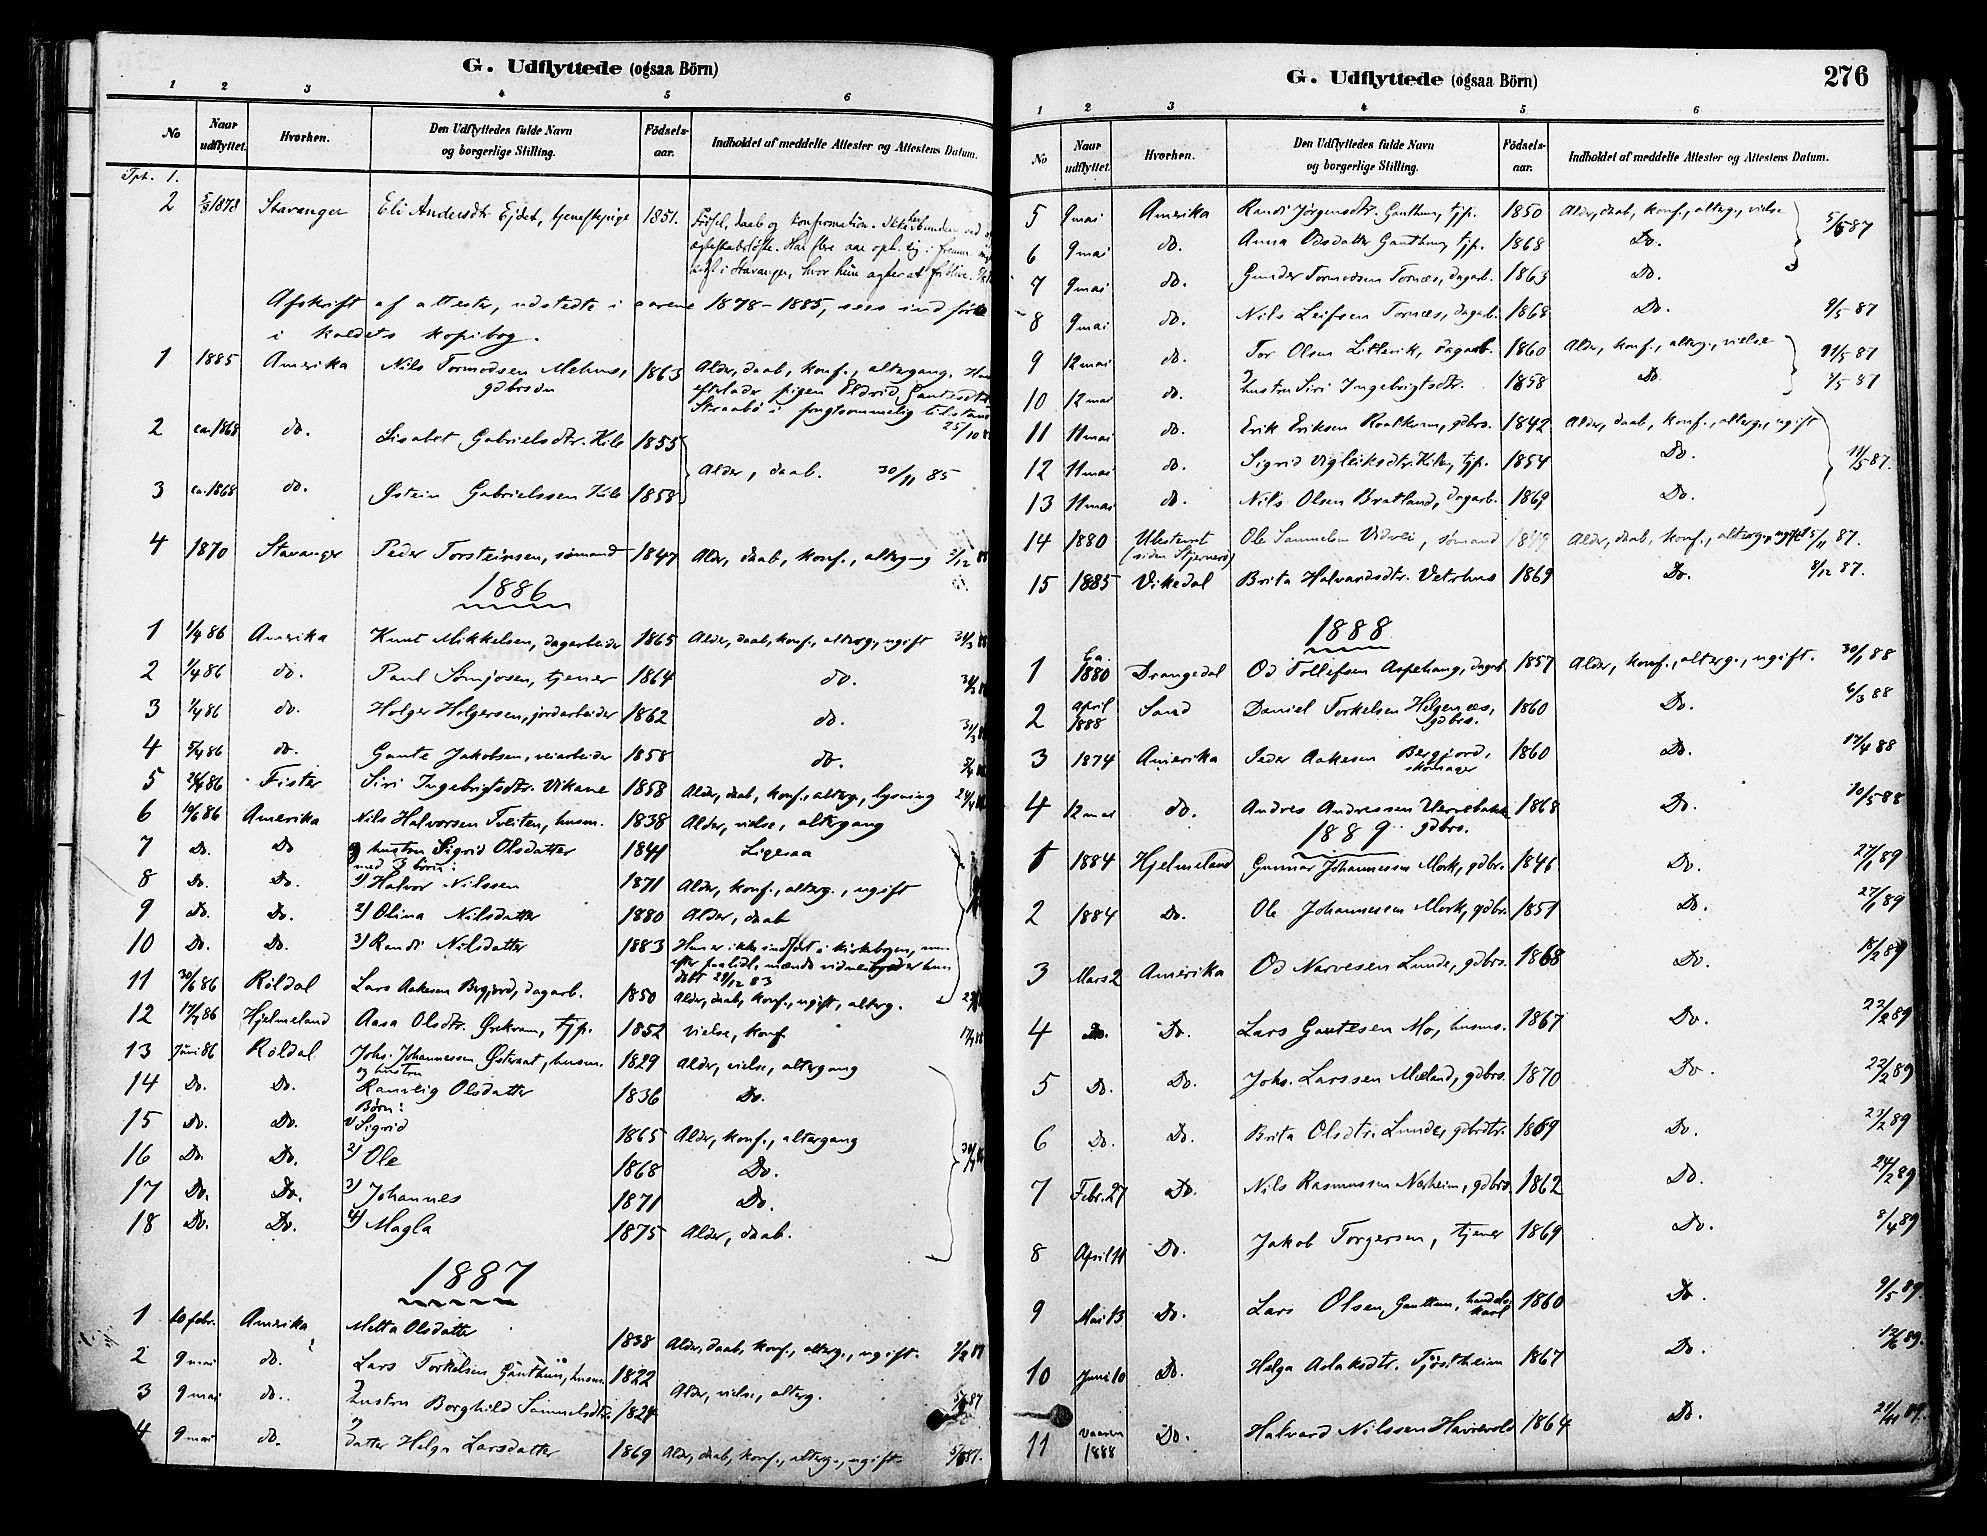 G. Udflyttede (ogsaa Börn)
1 2 3 4 5 6
No Naar udflyttet. Hvorhen. Den Udflyttedes fulde Navn og borgerlige Stilling. Födsels-aar. Indholdet af meddelte Attester og Attestens Datum.
Tph. 1.
2 1878 Stavanger Eli Andersdtr Ejdet, tjenestepige 1851. Fødsel, daab og konfirmation.
Afskrift af attester, udstedte i aarene 1878-1885, sees indførte
i kaldets kopibog.
1 1885 Amerika Nils Tormodsen Mehus, gdbrsøn 1863 Alder, daab, konf., altergang.
efterlader pigen Eldrid
Straabø i frugtsommelig tilstand
25/10
2 ca. 1868 do. Lisabet Gabrielsdtr. 1855
Alder, daab. 30/11 85
3 ca. 1868 do. Østein Gabrielssen 1858
4 1870 Stavanger Peder Torsteinsen, sømand 1847 Alder, daab, konf., altergang
1886
1 1/4 86 Amerika Knut Mikkelsen, dagarbeider 1865 Alder, daab, konf., alterg., ugift 31/3
2 1/4 86 do. Paul tjener 1864 do.
3 1/4 86 do. Holger Holgersen, jordarbeider 1862 do. 31/3
4 5/4 86 do. Gaute Jakobsen, veiarbeider 1858 do.
5 24/4 86 Fister Siri Ingebrigtsdtr. Vikane 1858 Alder, daab, konf., alterg., lysning
6 14/6 86 Amerika Nils Halvorsen Tveiten, husm. 1838 Alder, vielse, altergang
7 Do. Do hustru Sigrid Olsdatter 1841 Ligesaa
med 3 børn:
8 Do. Do. 1) Halvor Nilssen 1871 Alder, konf., alterg., ugift
9 Do. Do. 2) Olina Nilsdatter 1880 Alder, daab
10 Do. Do. 3) Randi Nilsdatter 1883 Hun er ikke indført i kirkebogen,
døbt 29/12 83
11 30/6 86 Röldal Lars Aakesen Bergjord, dagarb. 1850 Alder, daab, konf., ugift, alterg.
12 17/7 86 Hjelmeland Aasa Olsdtr. tjp. 1852 vielse, konf
13 Juni 86 Röldal Johs. Johannessen husm. 1829 Alder, vielse, altergang
og hustru
14 Do. Do. Ranveig Olsdatter 1836 Do.
Børn:
15 Do. Do. 1) Sigrid 1865 Alder, konf., altergang
16 Do. Do. 2) Ole 1868 Do.
17 Do. Do. 3) Johannes 1871 Do.
18 Do. Do. 4) Magla 1875 Alder, daab.
1887
1 10 febr. Amerika Metta Olsdatter 1838 Alder, daab, konf., alterg., ugift.
2 9 mai do. Lars Torkelsen husm. 1822
Alder, vielse, alterg.
3 9 mai do. hustru Borghild Samuelsdtr. 1824 5/5 87
4 9 mai do. datter Helga Larsdatter 1869 Alder, daab, konf., alterg., ugift. 5/5 87.
276
G. Udflyttede (ogsaa Börn)
1 2 3 4 5 6
No Naar udflyttet. Hvorhen. Den Udflyttedes fulde Navn og borgerlige Stilling. Födsels-aar. Indholdet af meddelte Attester og Attestens Datum.
5 9 mai Amerika Randi Jørgensdtr. Ganthun, tjp. 1850 Alder, daab, konf., alterg., vielse 5/5 87
6 9 mai do. Anna Odsdatter Ganthun, tjp. 1868 Do.
7 9 mai do. Gunder Tormodsen Tornæs, dagarb. 1863 Do.
8 9 mai do. Nils Leifsen Tornæs, dagarb. 1868 Do. 9/5 87
9 12 mai do. Tor Olsen dagarb. 1860 Alder, konf., alterg., vielse
10 12 mai do. hustru Siri Ingebrigtsdtr. 1858 Do.
11 11 mai do. Erik Eriksen Roalkvam, gdbrs. 1842 Alder, daab, konf., alterg., ugift
12 11 mai do. Sigrid Vigleiksdtr. tjp. 1854 Do. 11/5 87.
13 11 mai do. Nils Olsen Bratland, dagarb. 1869 Do.
14 1880 Ubestemt Ole Samuelsen sømand Alder, daab, konf., alterg., ugift 15/11 87.
(siden
15 1885 Vikedal Brita Halvardsdtr. 1869 Do. 8/12 87.
1888
1 Ca. 1880 Drangedal Od Tollefsen Aspehaug, dagarb. 1857 Alder, konf., alterg., ugift. 30/1 88
2 april 1888 Sand Daniel Torkelsen Helgenæs, gdbrs. 1860 Do. 6/3 88
3 1874 Amerika Peder Aakesen Bergjord, skomager 1860 Do. 17/4 88
4 12 mai do. Andres Andressen gdbrs. 1868 Do. 10/5 88
1889
1 1884 Hjelmeland Gunnar Johannessen Mork, gdbrs. 1846 Do. 27/1 89
2 1884 Do. Ole Johannessen Mork, gdbr. 1851 Do. 27/1 89
3 Mars 2 Amerika Od Narvesen Lunde, gdbrs. 1868 Do. 18/2 89
4 Do. Do. Lars Gautesen Mo, husms. 1867 Do. 22/2 89
5 Do. Do. Johs. Larssen Mæland, gdbrs. 1870 Do. 22/2 89
6 Do. Do. Brita Olsdtr. Lunde, gdbrdtr. 1869 Do. 23/2 89
7 Febr. 27 Do. Nils Rasmussen Nærheim, gdbrs. 1862 Do. 24/2 89
8 April 11 Do. Jakob Torgersen, tjener 1869 Do. 8/4 89
9 Mai 13 Do. Lars Olsen, Ganthun, handelskarl 1860 Do. 9/5 89.
10 Juni 10 Do. Helga Aslaksdtr. Tjöstheim 1867 Do.
11 vaaren 1888 Do. Halvard Nilssen Havrevold 1864 Do. 21/11 89.